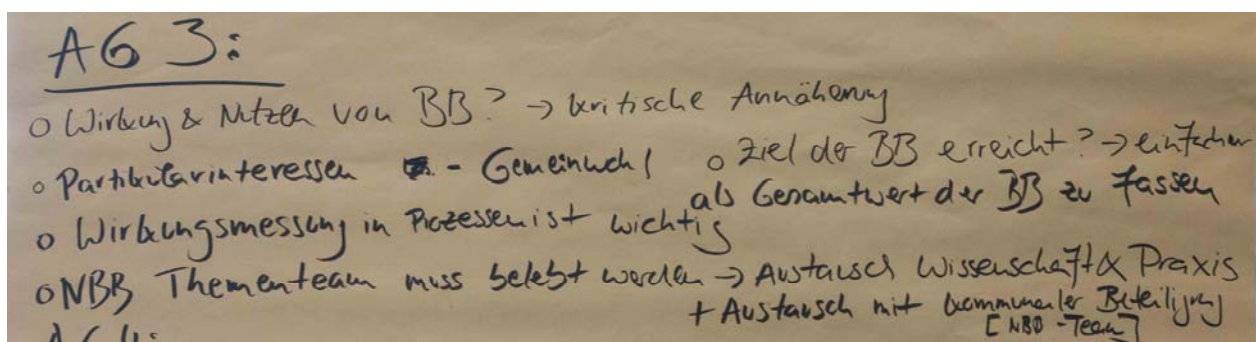 AG 3:
o Wirkung & Nutzen von BB? → kritische Annäherung
o Partikularinteressen - Gemeinwohl
o Ziel der BB erreicht? → einfacher
als Gesamtwert der BB zu fassen
o Wirkungsmessung in Prozessen ist wichtig
o NBB Thementeam muss belebt werden → Austausch Wissenschaft & Praxis
+ Austausch mit kommunaler Beteiligung
[NBB-Team]